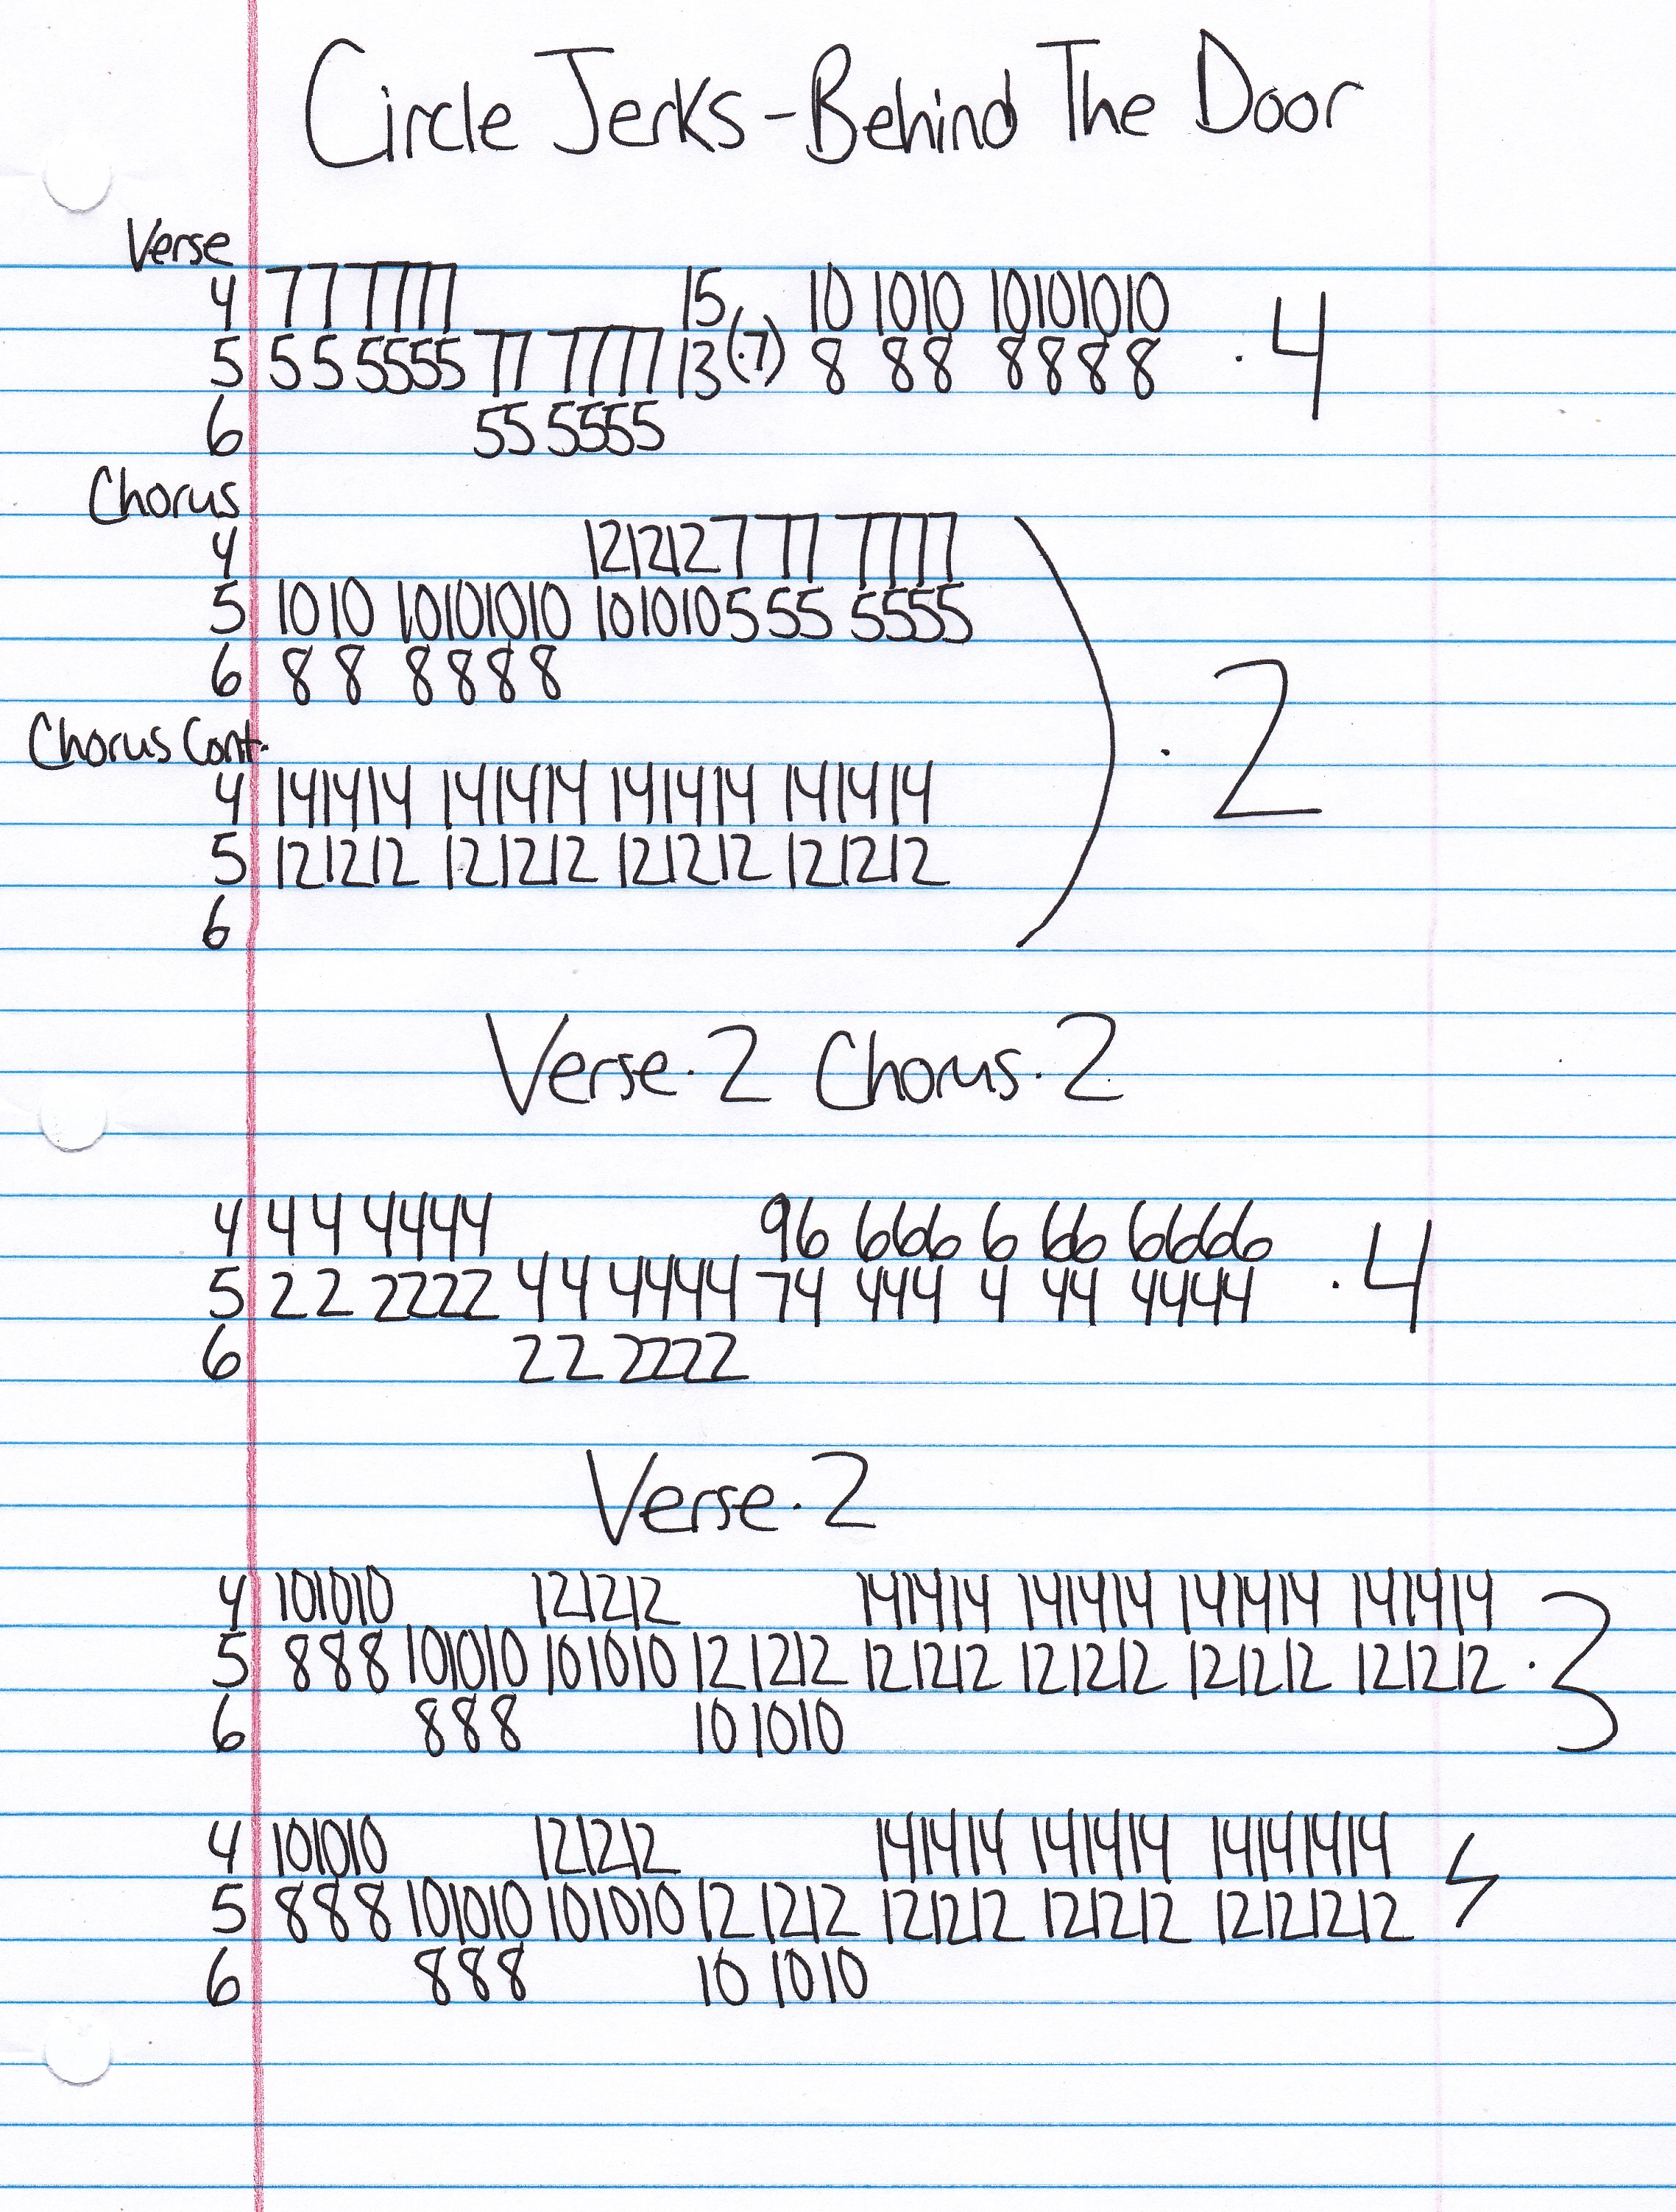 Circle Jerks - Behind The Door
Verse
4 7 7 7 7 7 7 15 10 10 10 10 10 10 10
5 5 5 5 5 5 5 7 7 7 7 7 7 13 (·7) 8 8 8 8 8 8 8 · 4
6 5 5 5 5 5 5
Chorus
4 12 12 12 7 7 7 7 7 7 7
5 10 10 10 10 10 10 10 10 10 5 5 5 5 5 5 5
6 8 8 8 8 8 8
· 2
Chorus Cont.
4 14 14 14 14 14 14 14 14 14 14 14 14
5 12 12 12 12 12 12 12 12 12 12 12 12
6
Verse · 2 Chorus · 2
4 4 4 4 4 4 4 9 6 6 6 6 6 6 6 6 6 6 6
5 2 2 2 2 2 2 4 4 4 4 4 4 7 4 4 4 4 4 4 4 4 4 4 4 · 4
6 2 2 2 2 2 2
Verse · 2
4 10 10 10 12 12 12 14 14 14 14 14 14 14 14 14 14 14 14
5 8 8 8 10 10 10 10 10 10 12 12 12 12 12 12 12 12 12 12 12 12 12 12 12 · 3
6 8 8 8 10 10 10
4 10 10 10 12 12 12 14 14 14 14 14 14 14 14 14 14
5 8 8 8 10 10 10 10 10 10 12 12 12 12 12 12 12 12 12 12 12 12 12
6 8 8 8 10 10 10